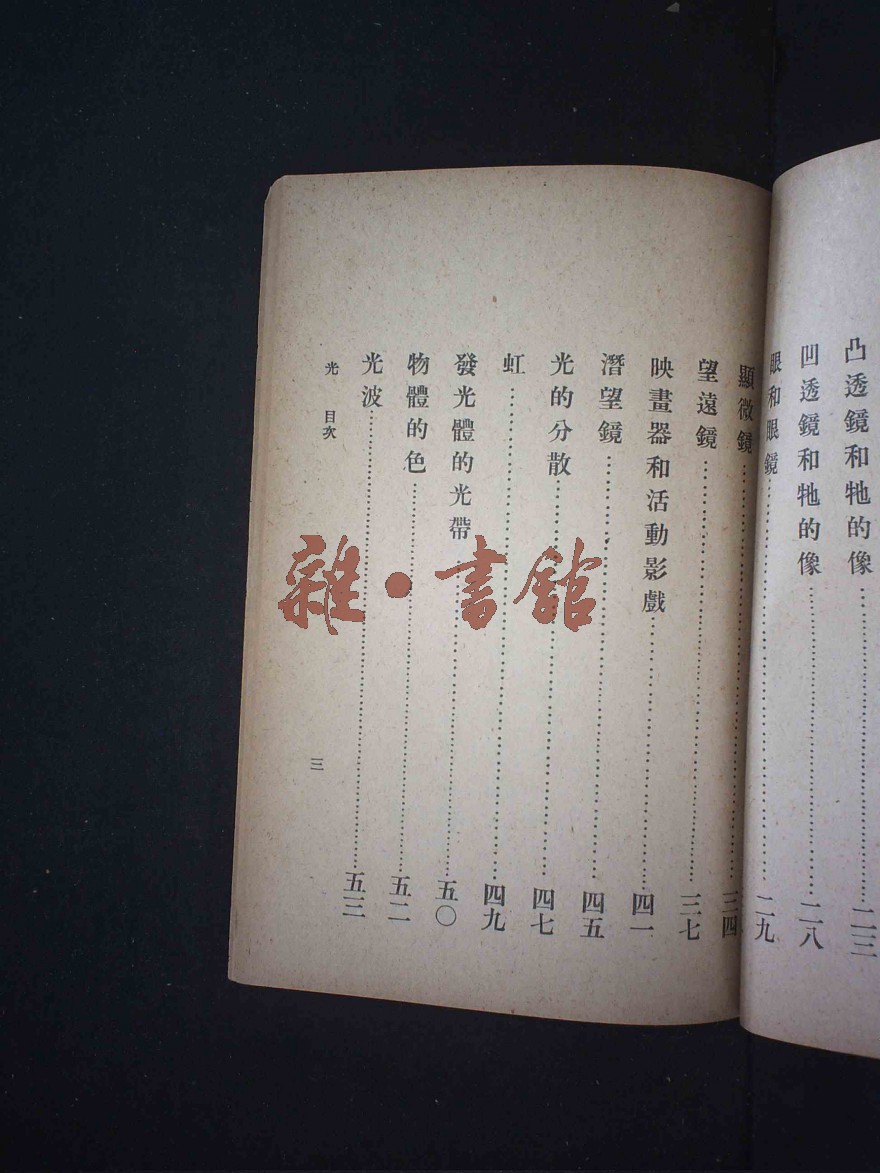 凸透鏡和牠的像……二三
凹透鏡和牠的像……二八
眼和眼鏡……二九
顯微鏡……三四
望遠鏡……三七
映畫器和活動影戲……四一
潛望鏡……四五
光的分散……四七
虹……四九
發光體的光帶……五〇
物體的色……五二
光波……五三
光 目次
三
雜·書館